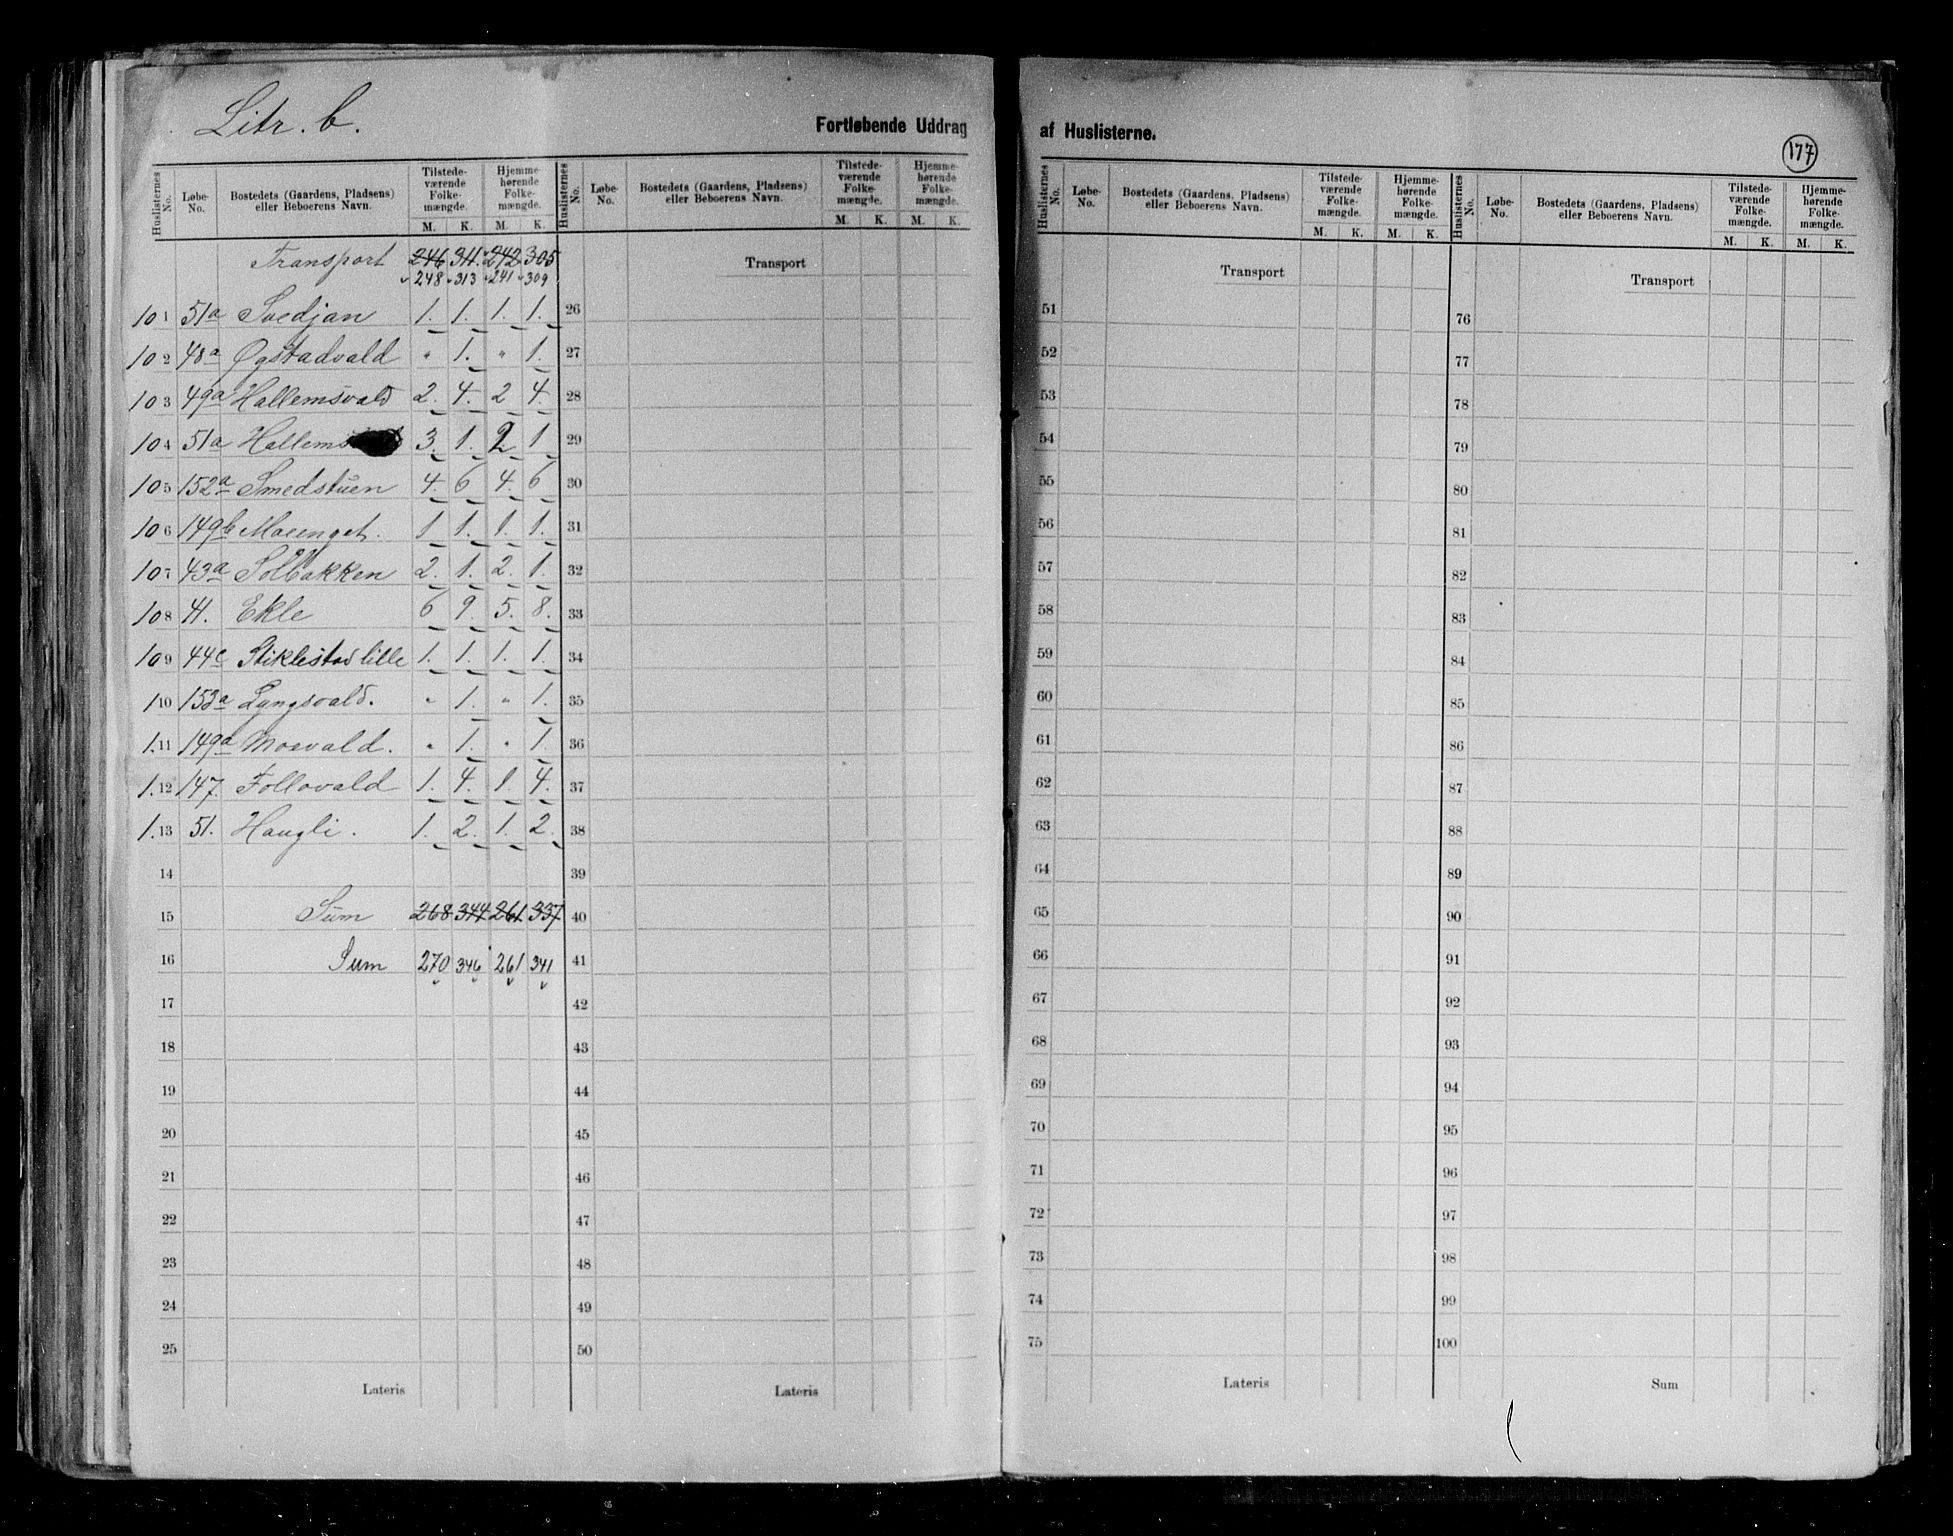 Litr. b.
Fortløbende Uddrag af Huslisterne.
177
Huslisternes No. Løbe-No. Bostedets (Gaardens, Pladsens) eller Beboerens Navn. Tilstede-værende Folke-mængde. M. K. Hjemme-hørende Folke-mængde. M. K.
Transport 246 311. 242 305
248 313 241 309
101 51a Svedjan 1. 1. 1. 1.
102 48a Øgstadvald " 1. " 1.
103 49a Hallemsvald 2. 4. 2 4.
104 51a Hallem 3. 1. 2 1
105 152a Smedstuen 4. 6 4. 6
106 149b Marenget. 1 1. 1. 1.
107 43a Solbakken 2. 1. 2. 1.
108 41. Ekle 6 9. 5. 8.
109 44c Stiklestad lille 1. 1. 1. 1.
110 153a Lyngsvald. " 1. " 1.
1.11 149a Moevald. " 1. " 1.
1.12 147. Follovald 1. 4. 1. 4.
1.13 51. Haugli. 1. 2. 1. 2.
14
15 Sum 268 344 261 337
16 Sum 270 346 261 341
17
18
19
20
21
22
23
24
25
Lateris
Huslisternes No. Løbe-No. Bostedets (Gaardens, Pladsens) eller Beboerens Navn. Tilstede-værende Folke-mængde. M. K. Hjemme-hørende Folke-mængde. M. K.
Transport
26
27
28
29
30
31
32
33
34
35
36
37
38
39
40
41
42
43
44
45
46
47
48
49
50
Lateris
Huslisternes No. Løbe-No. Bostedets (Gaardens, Pladsens) eller Beboerens Navn. Tilstede-værende Folke-mængde. M. K. Hjemme-hørende Folke-mængde. M. K.
Transport
51
52
53
54
55
56
57
58
59
60
61
62
63
64
65
66
67
68
69
70
71
72
73
74
75
Lateris
Huslisternes No. Løbe-No. Bostedets (Gaardens, Pladsens) eller Beboerens Navn. Tilstede-værende Folke-mængde. M. K. Hjemme-hørende Folke-mængde. M. K.
Transport
76
77
78
79
80
81
82
83
84
85
86
87
88
89
90
91
92
93
94
95
96
97
98
99
100
Sum